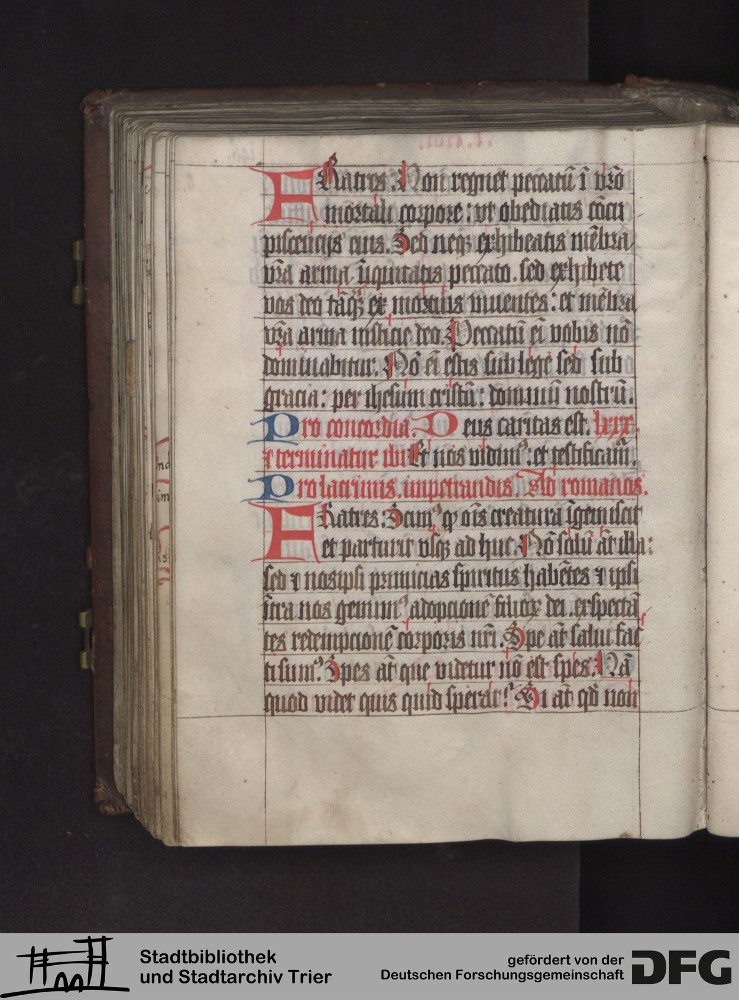 FRatres. Non regnet peccatū ī vr̄o
mortali corpore: vt obediatis cōcu
piscencijs eius. Sed neqꝫ exhibeatis mēbra
vr̄a arma īiquitatis peccato. sed exhibete
vos deo tāqꝫ ex mortuis viuentes: et mēbra
vr̄a arma iusticie deo. Peccatū eī vobis nō
dominabitur. Nō eī estis sub lege sed sub
gracia: per ihesum cristū: dominū nostrū.
Pro concordia. Deus caritas est. lxxx.
⁊ terminatur ibi Et nos vidimꝰ: et testificam̄.
Pro lacrimis. impetrandis. Ad romanos.
FRatres. Scimꝰ qꝫ oīs creatura īgemiscit
et parturit vsqꝫ ad huc. Nō solū āt illa:
sed ⁊ nosipsi primicias spiritus habētes ⁊ ipsi
ītra nos gemimꝰ adopcionē filioꝝ dei. exspectā
tes redempcionē corporis nr̄i. Spe āt salui fac
ti sumꝰ. Spes āt que videtur nō est spes. Nā
quod videt quis quid sperat? Si āt qd̄ non
Stadtbibliothek
und Stadtarchiv Trier
gefördert von der
Deutschen Forschungsgemeinschaft
DFG